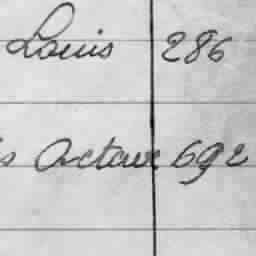 Louis 286
s Octave 692